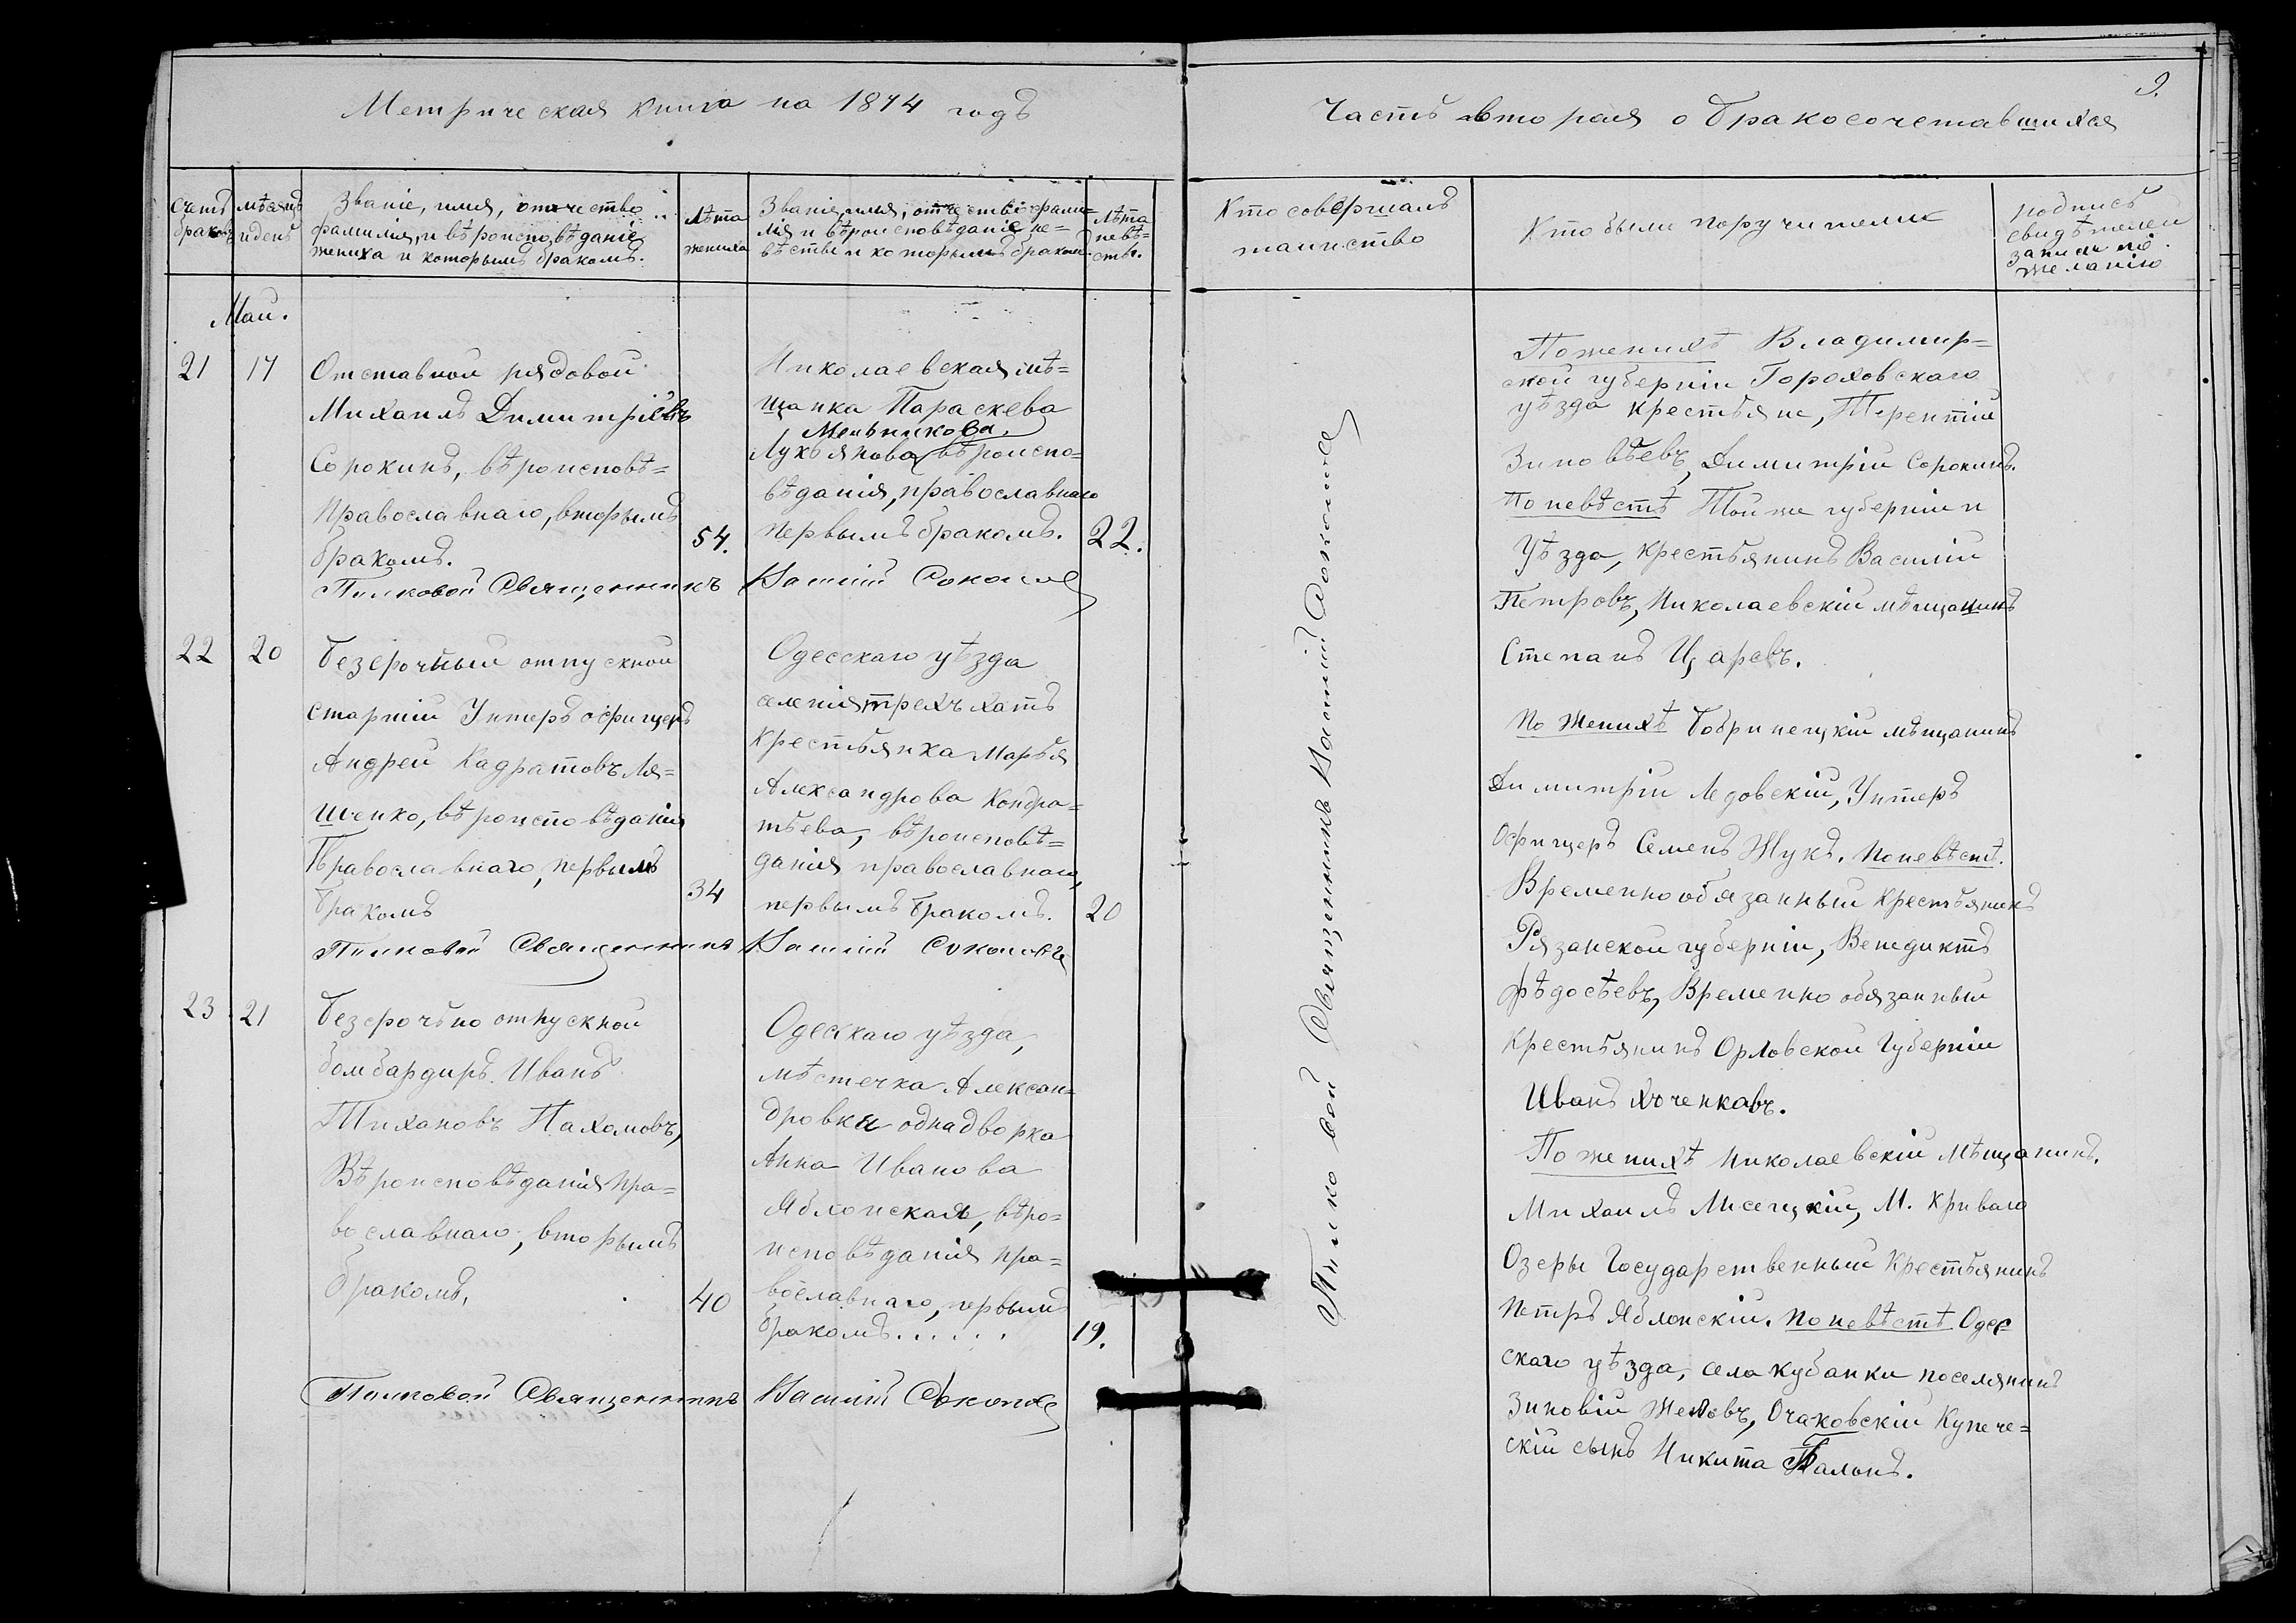 Метрическая книга на 1874 годъ
Счетъ браковъ
мѣсяцъ и день
Званіе, имя, отчество
фамилія, и вѣроисповѣданіе
жениха и которымъ бракомъ.
лѣта жениха
Званіе, имя, отчество фами=
лія и вѣроисповѣданіе не=
вѣсты и которымъ бракомъ.
лѣта невѣ=
сты.
Май.
21
17
Отставной рядовой
Михаилъ Димитріевъ
Сорокинъ, вѣроисповѣ=
Православнаго, вторымъ
бракомъ.
54.
Николаевская мѣ=
щанка Параскева
Мельникова
Лукьянова вѣроиспо=
вѣданія, православнаго
первымъ бракомъ.
22.
Полковой Священникъ Василій Соколовъ
22
20
Безсрочный отпускной
старшій Унтеръ офицеръ
Андрей Кадратовъ Ля=
шенко, вѣроисповѣданія
Православнаго, первымъ
бракомъ
34
Одесскаго уѣзда
селенія трехъ хатъ
крестьянка Марья
Александрова Кондра=
тьева, вѣроисповѣ=
данія православнаго,
первымъ бракомъ.
20
Полковой Священникъ Василій Соколовъ
23
21
Безсрочьно отпускной
бомбардиръ Иванъ
Тихановъ Пахомовъ,
Вѣроисповѣданія пра=
вославнаго, вторымъ
бракомъ,
40
Одесскаго уѣзда,
мѣстечка Алексан=
дровки однадворка
Анна Иванова
Яблонская, вѣро=
исповѣданія пра=
вославнаго, первымъ
бракомъ......
19.
Полковой Священникъ Василій Соколовъ
9.
Часть вторая о бракосочетавшихся
Кто совершалъ
таинство
Кто были поручители
подпись
свидѣтелей
записи по
желанію
Полковой Священникъ Василій Соколовъ
По женихѣ Владимир=
ской губерніи Гороховскаго
уѣзда крестьяне, Терентій
Зиновѣевъ, Димитрій Сорокинъ.
по невѣстѣ Той же губерніи и
Уѣзда, крестьянинъ Василій
Петровъ, Николаевскій мѣщанинъ
Степанъ Царевъ.
По женихѣ Бобринецкій мѣщанинъ
Димитрій Ледовскій, Унтеръ
Офицеръ Семенъ Жукъ. По невѣстѣ.
Временно обязанный крестьянинъ
Рязанской губерніи, Венедиктъ
Фѣдосѣевъ, Временно обязанный
крестьянинъ Орловской Губерніи
Иванъ
По женихѣ Николаевскій мѣщанинъ.
Михаилъ Лисецкій, М. Криваго
Озеры Государственный Крестьянинъ
Петръ Яблонскій. По невѣстѣ Одес
скаго уѣзда, села кубанки поселянинъ
Зиновій Очаковскій Купече=
скій сынъ Никита